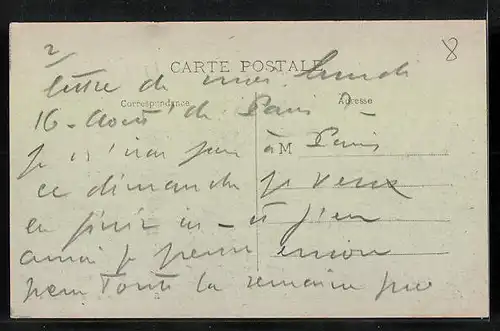 2/
8
CARTE POSTALE
lettre de mes lundi
Correspondance
Adresse
16 - Août de Paris ? -
je n'irai pas à M Paris
ce dimanche je veux
en finir ici - et j'en
aurai je pense encore
pour Toute la semaine pro